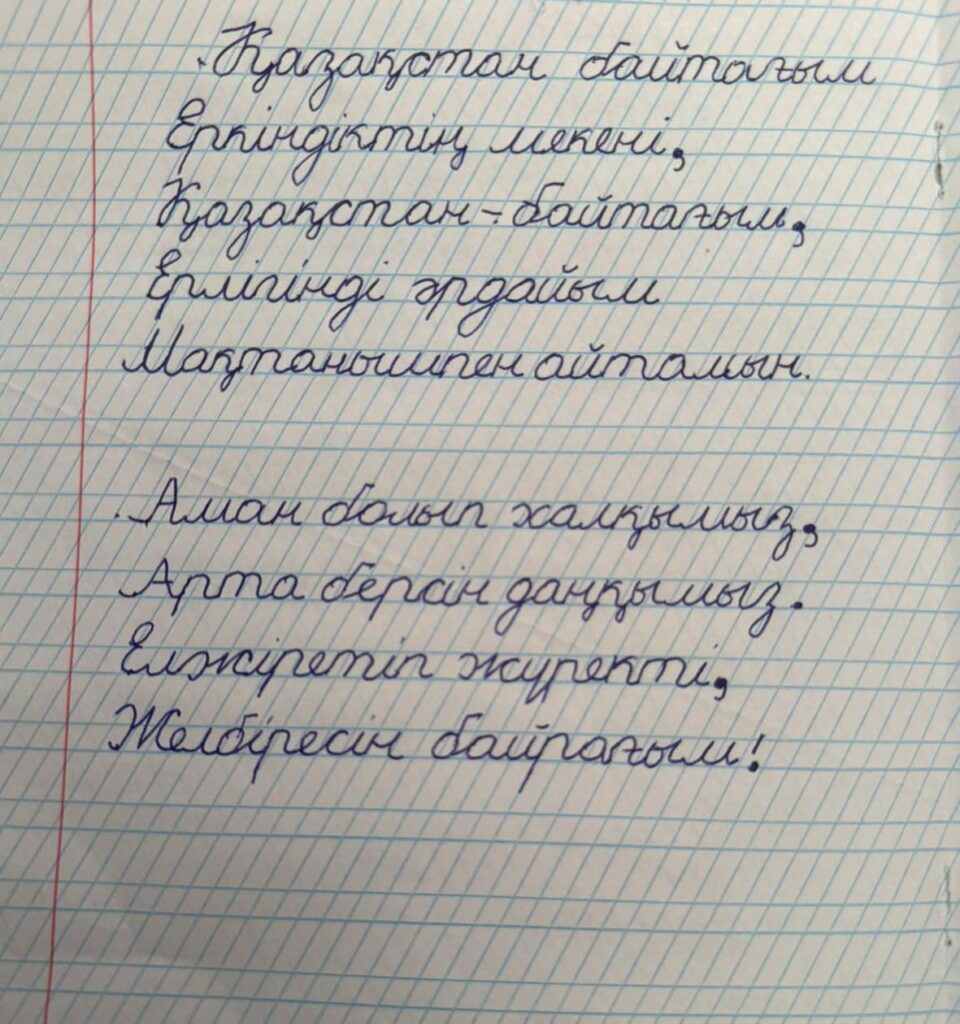 Қазақстан байтағым
Еркіндіктің мекені,
Қазақстан-байтағым,
Ерлігінді әрдайым
Мақтанышпен айтамын.
Аман болып халқымыз,
Арта берсін даңқымыз.
Елжіретіп жүректі,
Желбіресін байрағым!